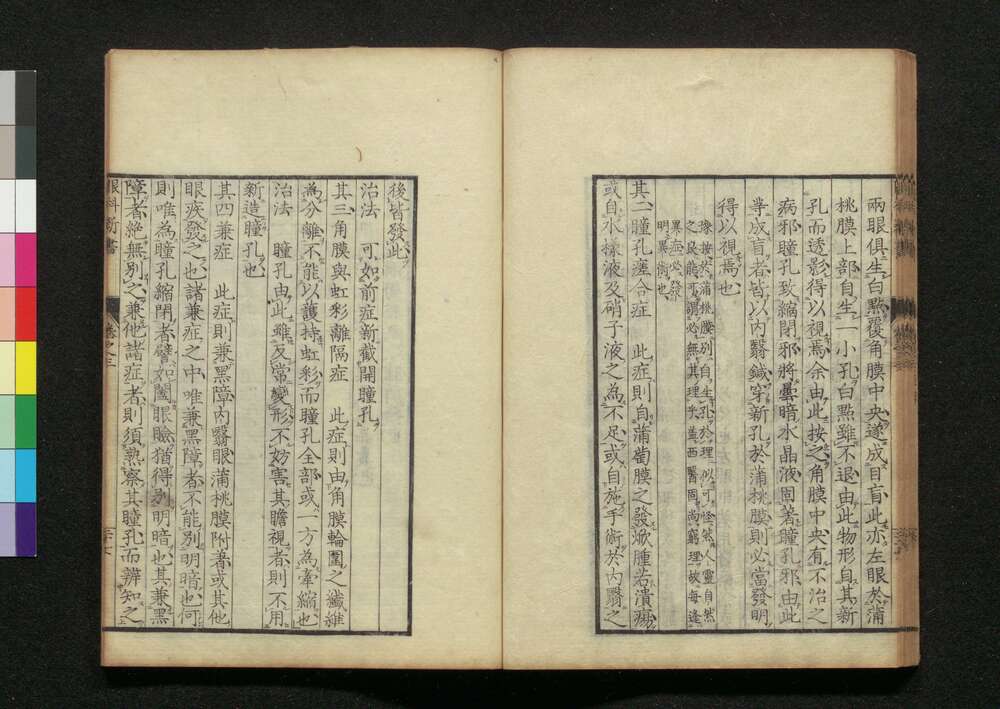 兩眼俱生白點覆角膜中央遂成目盲此亦左眼於蒲
桃膜上部自生一小孔白點雖不退由此物形自其新
孔而透影得以視焉余由此按之角膜中央有不治之
病邪瞳孔致縮閉邪將曇暗水晶液固著瞳孔邪由此
等成盲者皆以内翳鍼穿新孔於蒲桃膜則必當發明
得以視焉也
豫按於蒲桃膜別自生孔於理似可怪然人靈自然
之良能可謂必無其理乎蓋西醫固尚窮理故每逢
異症必發
明異術也
其二瞳孔瘞合症 此症則自蒲萄膜之發焮腫若潰瘍
或自水樣液及硝子液之為不足或自施手術於内翳之
後皆發此
治法 可如前症新截開瞳孔
其三角膜與虹彩離隔症 此症則由角膜輪圍之纖維
為分離不能以護持虹彩而瞳孔全部或一方為牽縮也
治法 瞳孔由此雖反常變形不妨害其瞻視者則不用
新造瞳孔也
其四兼症 此症則兼黑障内翳眼蒲桃膜附著或其他
眼疾發之也諸兼症之中唯兼黑障者不能別明暗也何
則唯為瞳孔縮閉者譬如闔眼瞼猶得別明暗也其兼黑
障者絶無別之兼他諸症者則須熟察其瞳孔而辨知之
眼科新書
卷之三